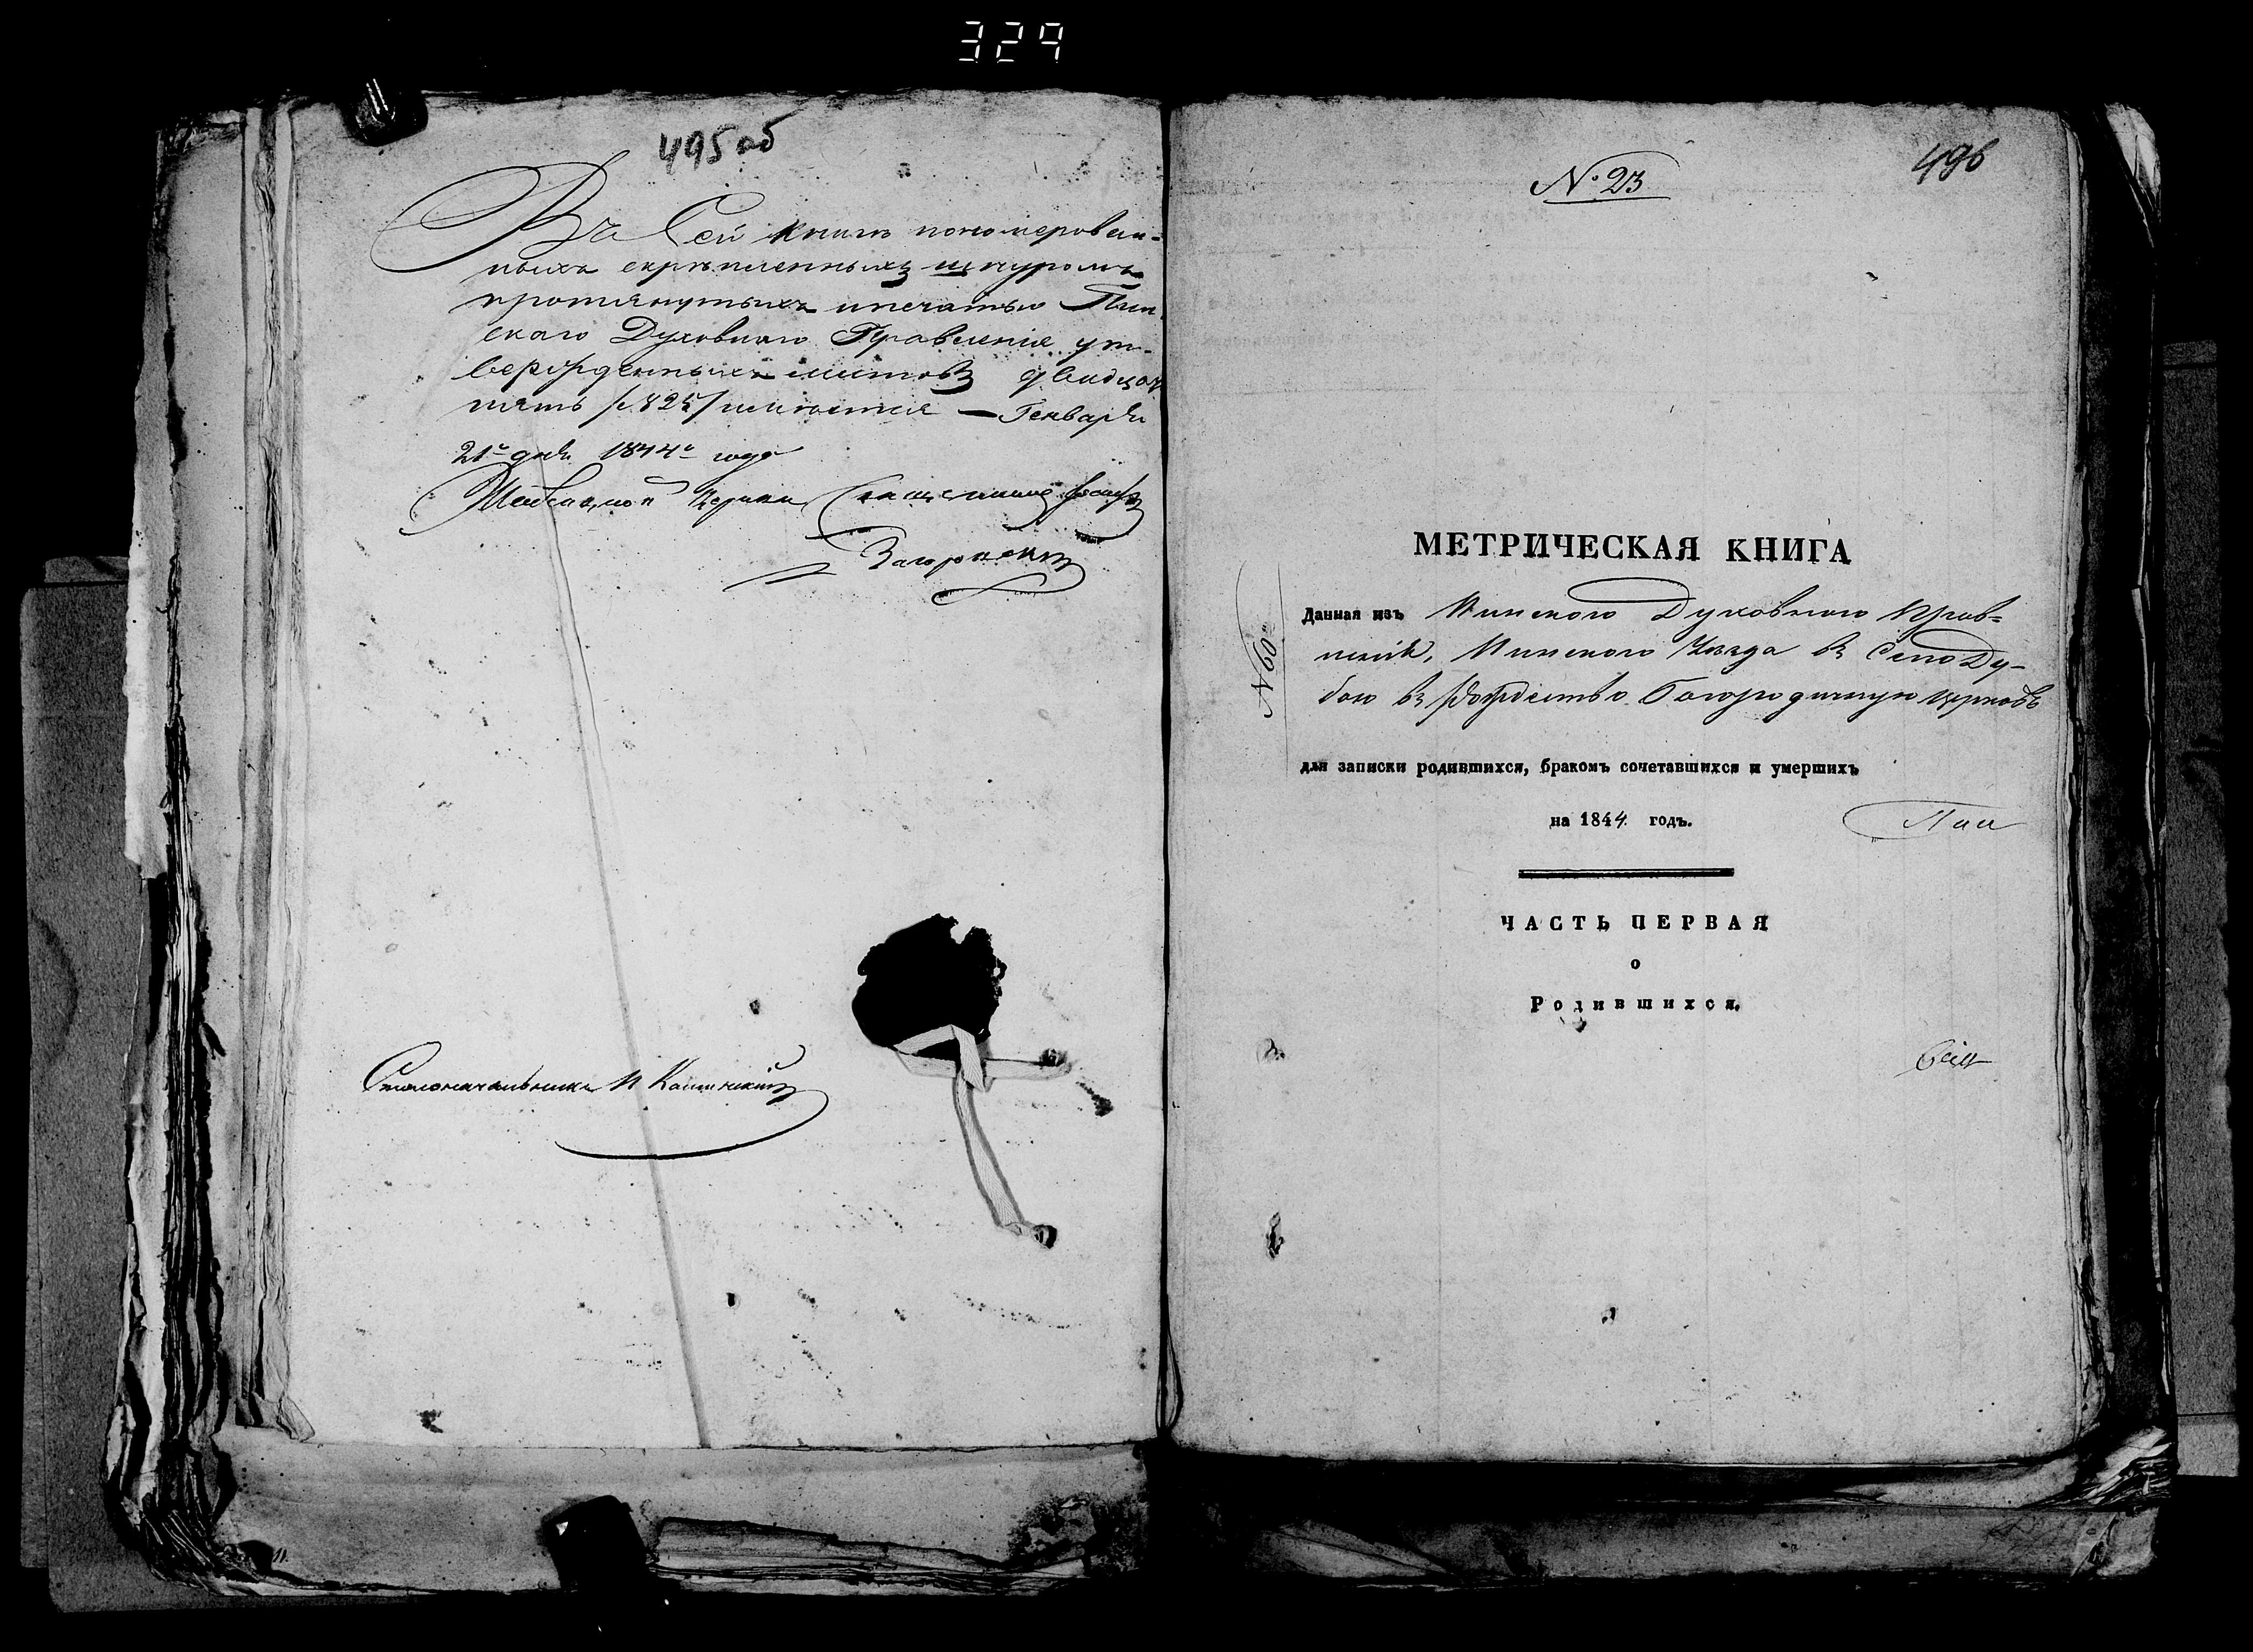 329
495 об
Въ Сей книгѣ пономерован-
ныхъ скрѣпленныхъ шнуромъ
протянутыхъ и печатью Пин
скаго Духовнаго Правленія ут-
вержденныхъ листовъ двадцать
пять /№ 25/ имѣется — Генваря
21го дня 1844го года
Церкви Священникъ
Столоначальникъ
№ 23
496
МЕТРИЧЕСКАЯ КНИГА
Данная изъ Пинского Духовного Прав-
ленія, Пинского Уѣзда въ Село Ду-
бою въ Рождество Богородичную церковь
№ 60
для записки родившихся, бракомъ сочетавшихся и умершихъ
на 1844 годъ.
Пин
ЧАСТЬ ПЕРВАЯ
о
Родившихся.